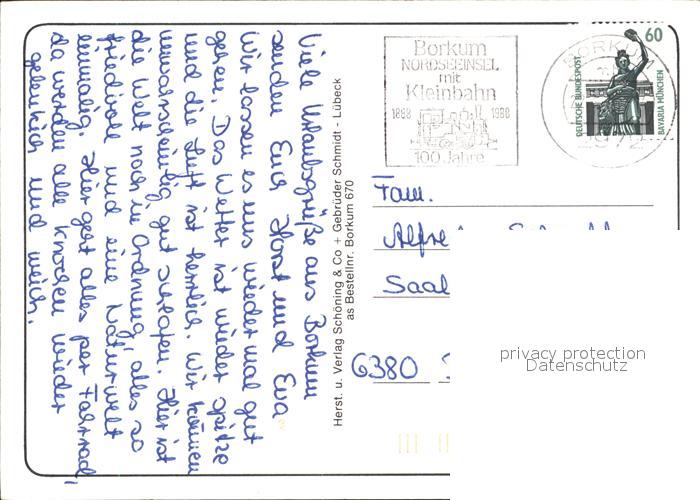 Viele Urlaubsgrüße aus Borkum
senden Euch Horst und Eva
Wir lassen es uns wieder mal gut
gehen. Das Wetter ist wieder spitze
und die Luft ist herrlich. Wir können
unwarscheinlig gut schlafen. Hier ist
die Welt noch in Ordnung, alles so
friedvoll und eine Naturwelt
einmalig. Hier geht alles per Fahrrad,
da werden alle Knochen wieder
gelenkich und weich.
Herst. u. Verlag Schöning & Co + Gebrüder Schmidt - Lübeck
as Bestellnr. Borkum 670
Borkum
NORDSEEINSEL
mit
Kleinbahn
1888 1988
100 Jahre
BORKUM
2972
60
DEUTSCHE BUNDESPOST
BAVARIA MÜNCHEN
Fam.
Alfre
Saal
6380
privacy protection
Datenschutz